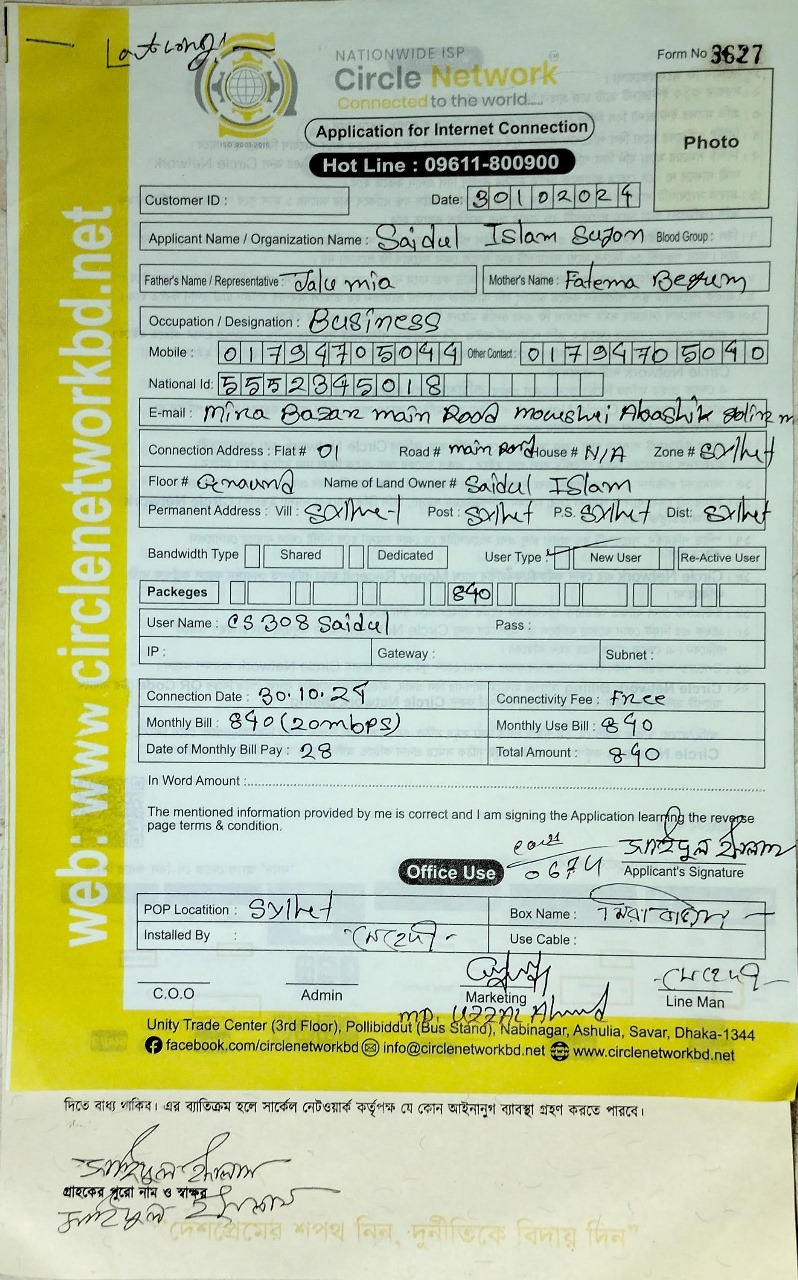 NATIONWIDE ISP
Circle Network
Connected to the world....
ISO 9001:2015
Form No 3627
Application for Internet Connection
Hot Line : 09611-800900
Photo
web: www.circlenetworkbd.net
Customer ID : Date: 30102024
Applicant Name / Organization Name : Saidul Islam Suzon Blood Group :
Father's Name / Representative : Jalu mia Mother's Name : Fatema Begum
Occupation / Designation : Business
Mobile : 01794705044 Other Contact : 01794705040
National Id: 5552345018
E-mail : Mira Bazar main Road Abashik
Connection Address : Flat # 01 Road # main Road House # N/A Zone # Sylhet
Floor # Name of Land Owner # Saidul Islam
Permanent Address : Vill : Sylhet Post : Sylhet P.S. Sylhet Dist: Sylhet
Bandwidth Type Shared Dedicated User Type : New User Re-Active User
Packeges 840
User Name : CS308 Saidul Pass :
IP : Gateway : Subnet :
Connection Date : 30.10.24 Connectivity Fee : Free
Monthly Bill : 840 (20mbps) Monthly Use Bill : 840
Date of Monthly Bill Pay : 28 Total Amount : 840
In Word Amount :
The mentioned information provided by me is correct and I am signing the Application learning the reverse
page terms & condition.
Office Use 0674 সাইদুল ইসলাম
Applicant's Signature
POP Locatition : Sylhet Box Name : মিরাবাজার
Installed By : মেহেদী Use Cable :
মেহেদী
C.O.O Admin Marketing Line Man
MD. Uzzal Ahmed
Unity Trade Center (3rd Floor), Pollibiddut (Bus Stand), Nabinagar, Ashulia, Savar, Dhaka-1344
facebook.com/circlenetworkbd info@circlenetworkbd.net www.circlenetworkbd.net
দিতে বাধ্য থাকিব। এর ব্যতিক্রম হলে সার্কেল নেটওয়ার্ক কর্তৃপক্ষ যে কোন আইনানুগ ব্যাবস্থা গ্রহণ করতে পারবে।
সাইদুল ইসলাম
গ্রাহকের পুরো নাম ও স্বাক্ষর
সাইদুল ইসলাম
"দেশপ্রেমের শপথ নিন, দুর্নীতিকে বিদায় দিন"